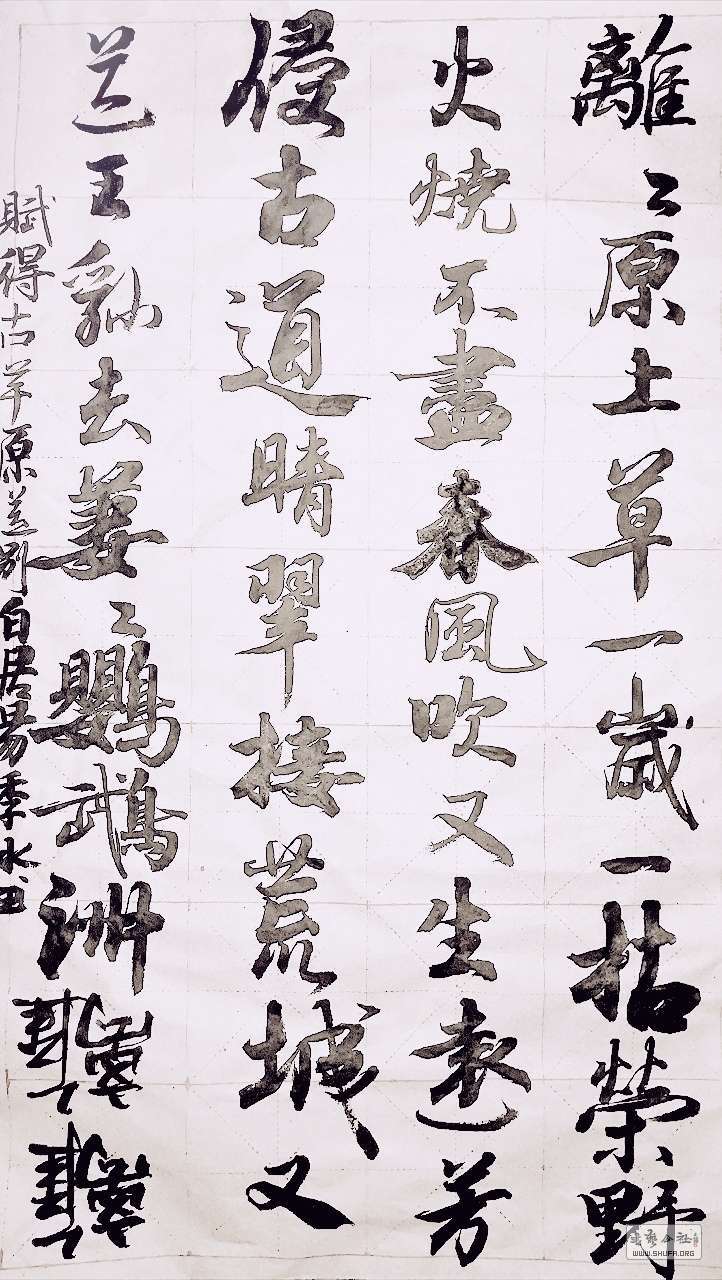 離〻原上草一歲一枯榮野
火燒不盡春風吹又生遠芳
侵古道晴翠接荒城又
送王孫去萋〻鸚鵡洲
賦得古草原送別白居易季水
書藝公社
WWW.SHUFA.ORG